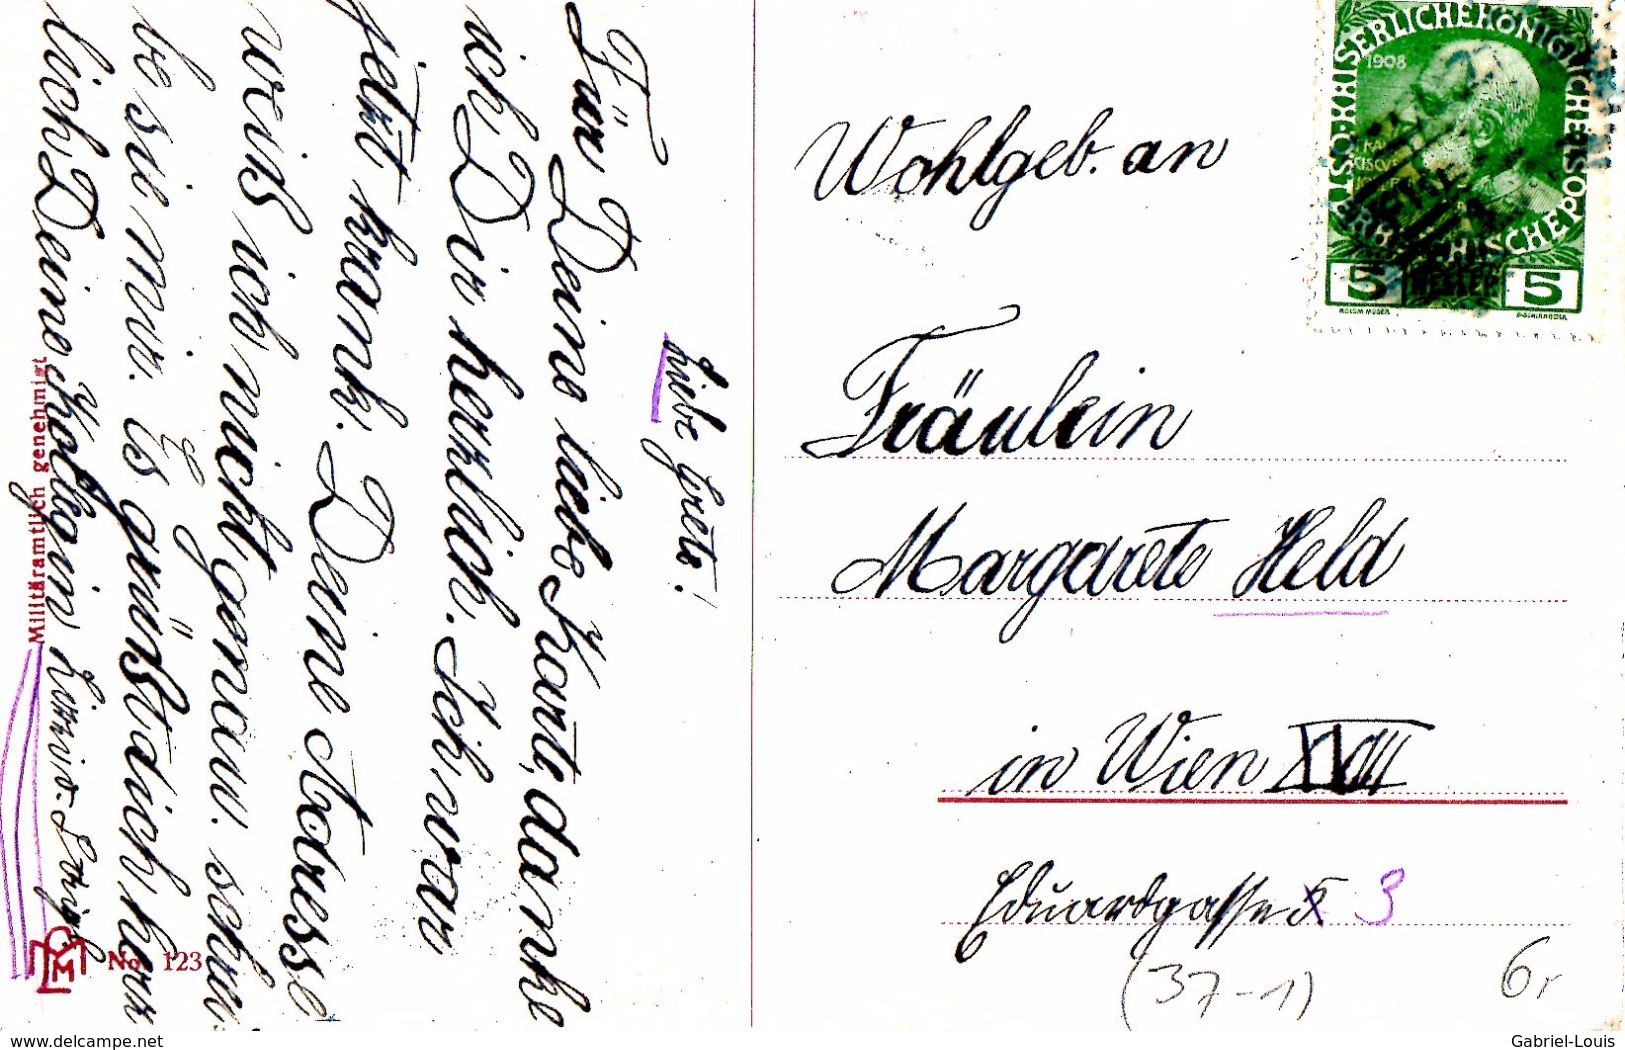 Liebe Grete!
Für Deine liebe Karte danke
ich Dir herzlich. Ich war
jetzt krank. Deine Adresse
weiß ich nicht genau. schrei
be sie mir. Es grüßt dich herz
lich Deine Kollegin
Militäramtlich genehmigt
No. 123
Wohlgeb. an
Fräulein
Margarete Held
in Wien XVIII
Eduardgasse 3
(37-1)
6r
KAISERLICHE KÖNIGLICHE ÖSTERREICHISCHE POST
1908
5 HELLER 5
www.delcampe.net
Gabriel-Louis